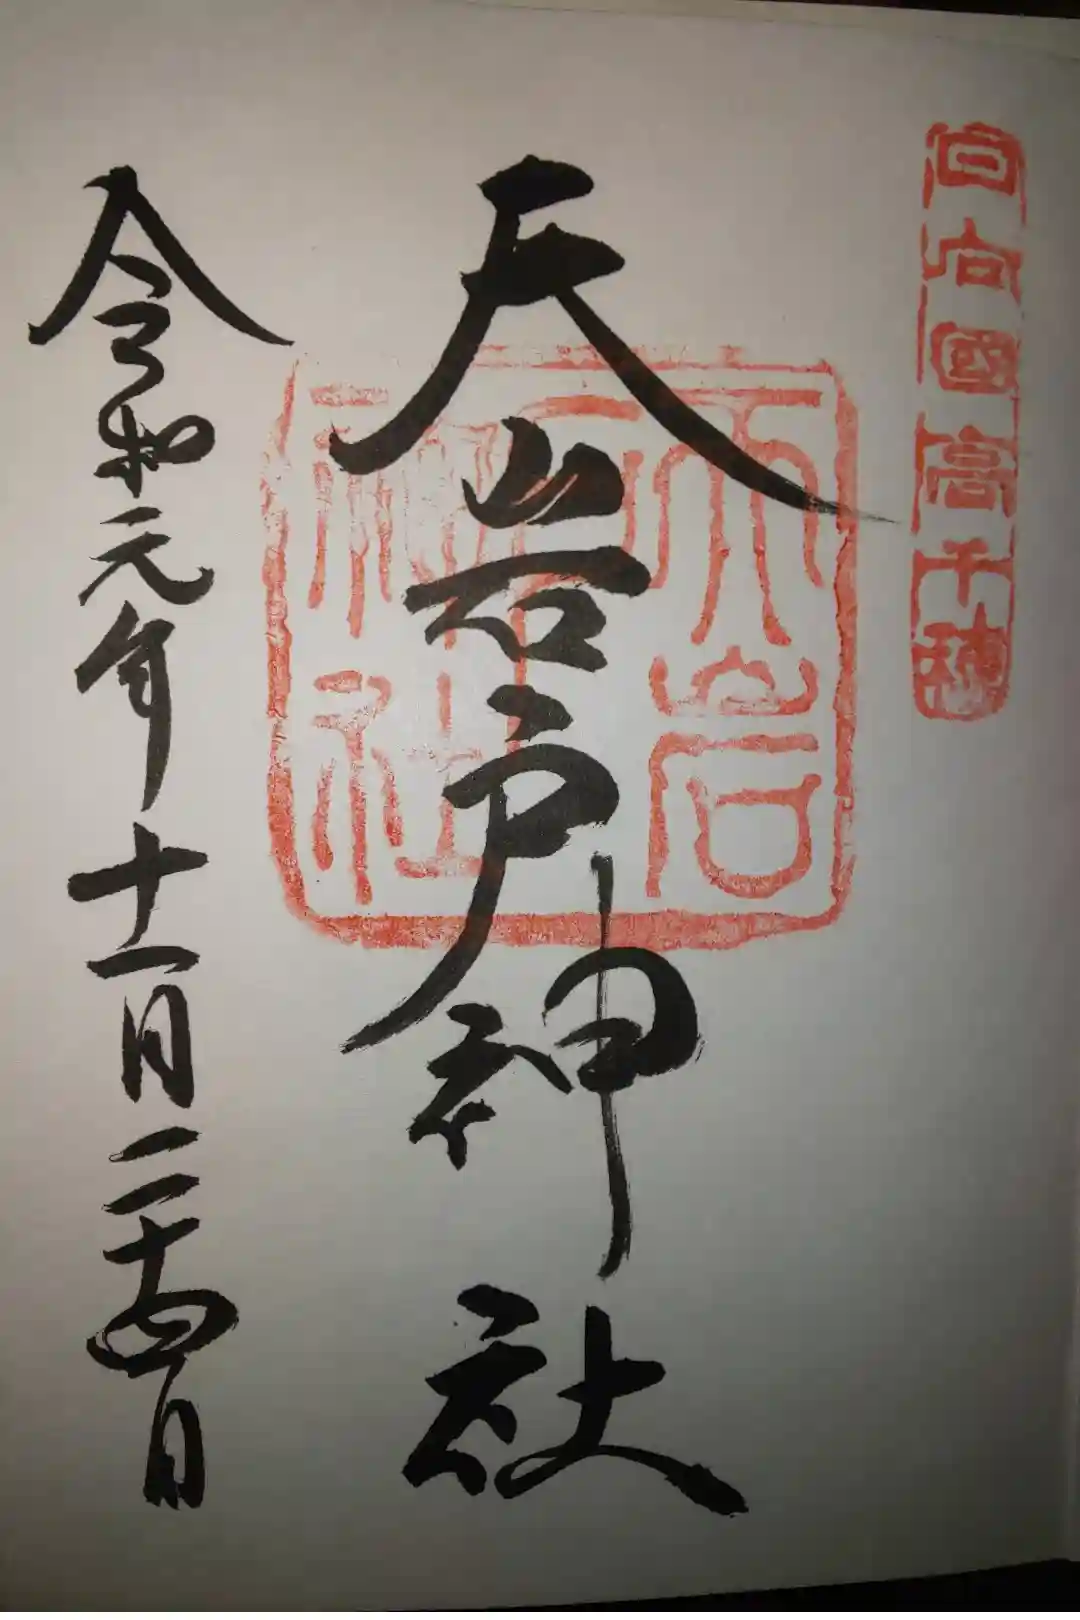 日向國高千穂
天岩戸神社
天岩戸神社
令和元年十一月二十四日